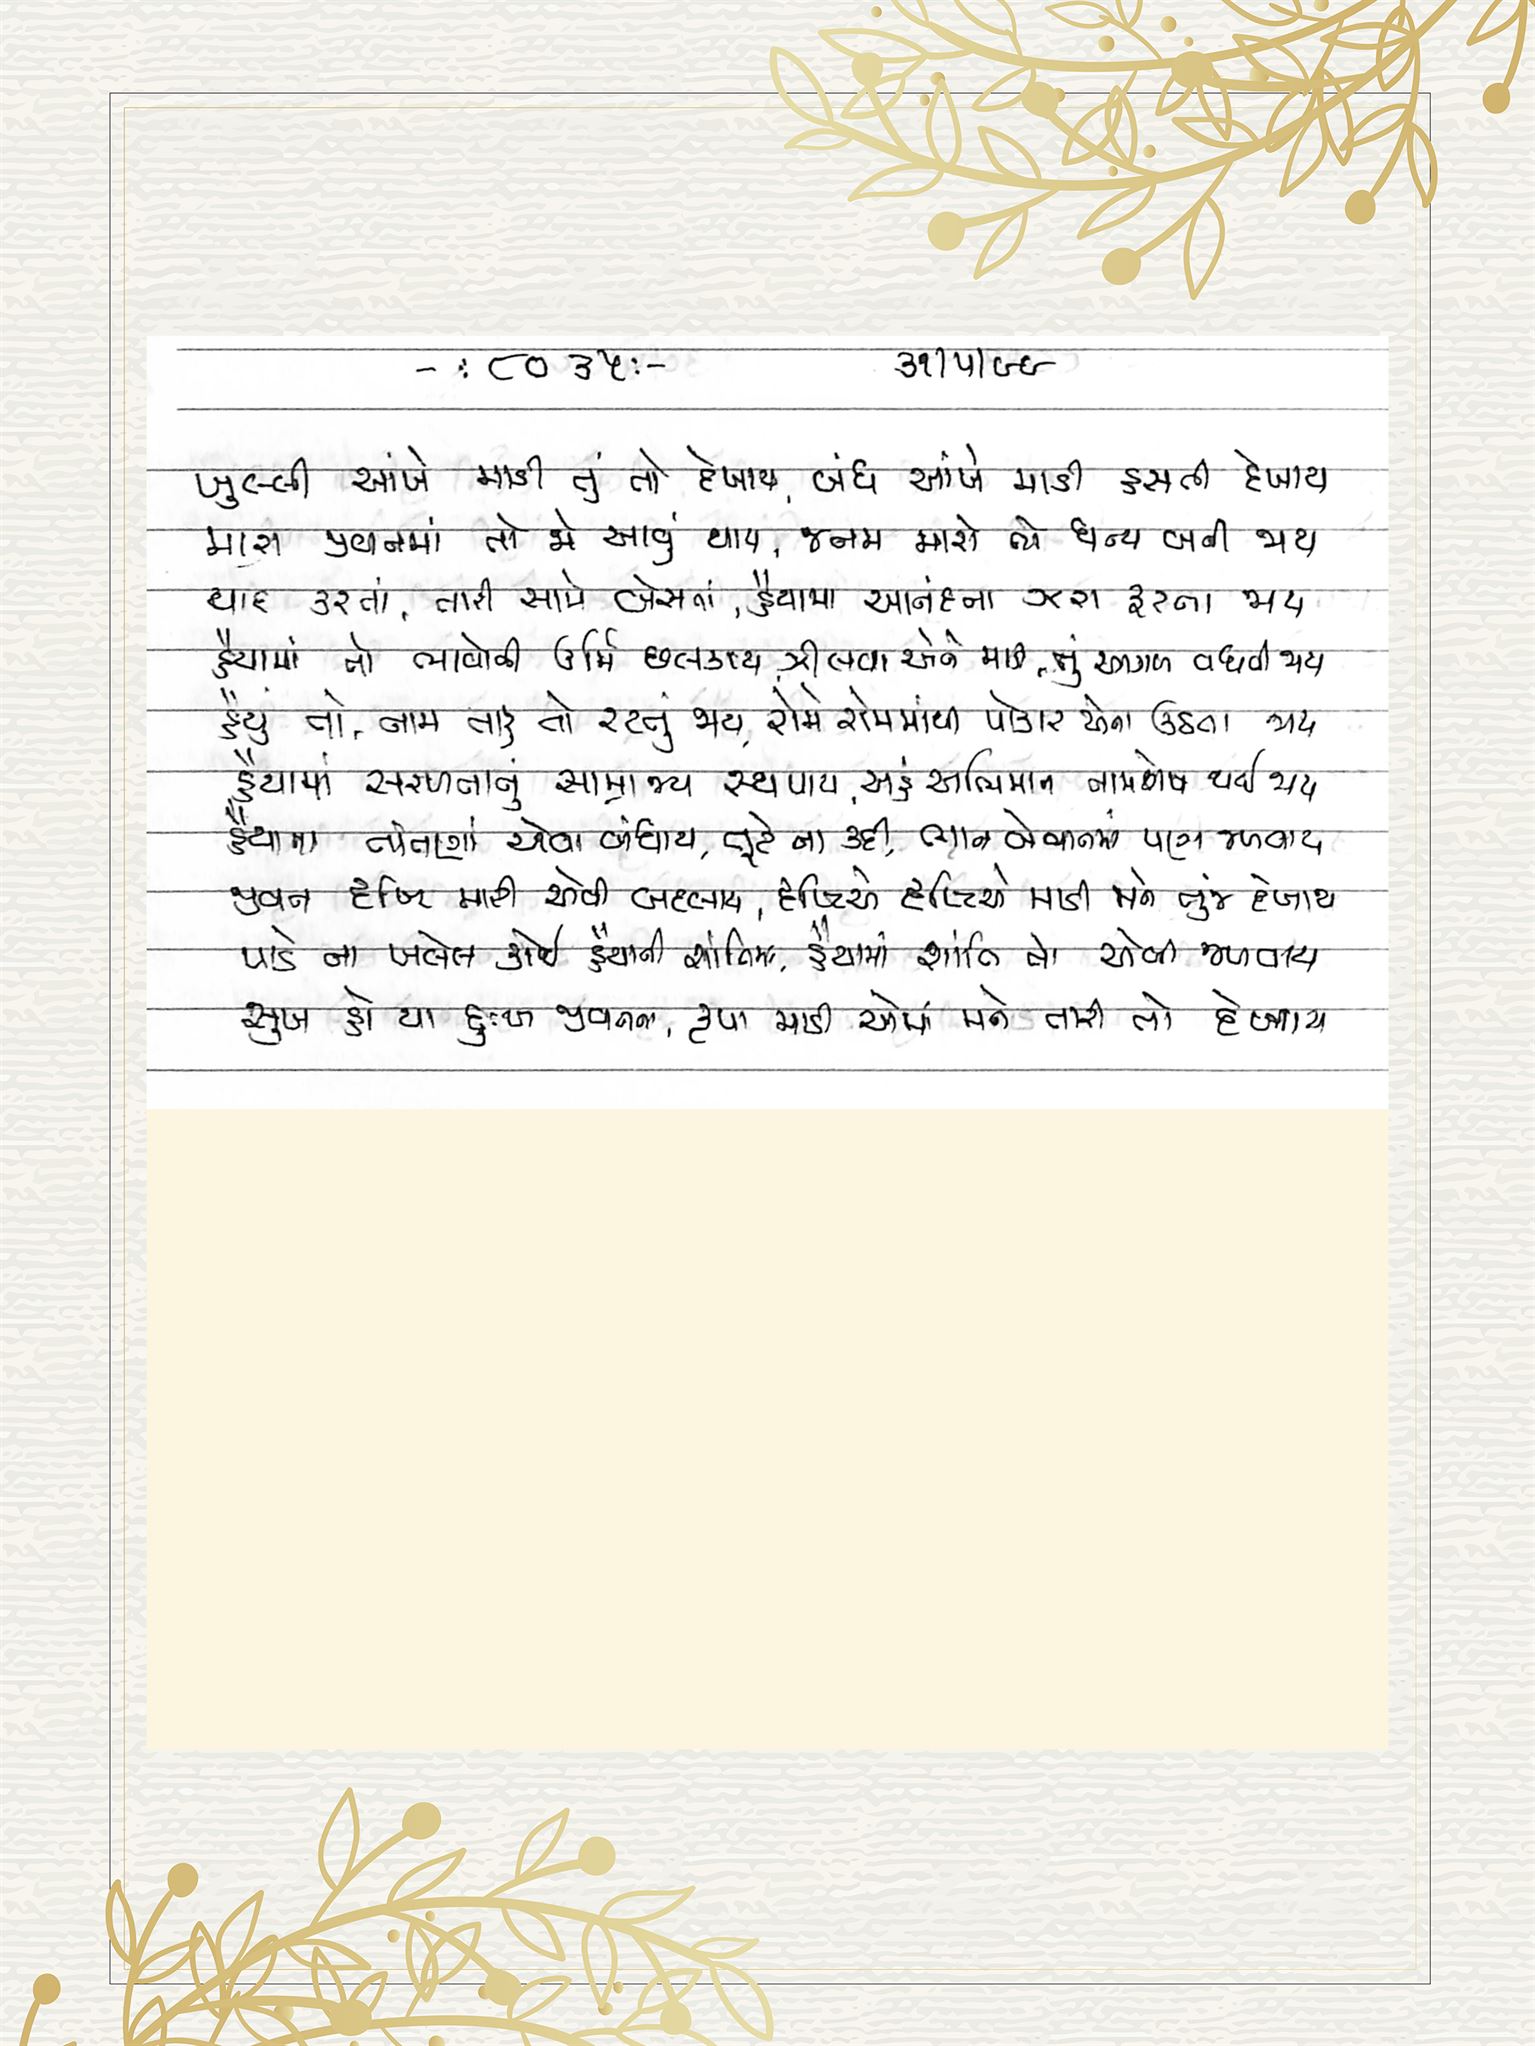 -: ૮૦૩૫ :- ૩૧/૫/૯૯
ખુલ્લી આંખે માડી તું તો દેખાય, બંધ આંખે માડી હસતી દેખાય
મારા જીવનમાં તો જો આવું થાય, જનમ મારો તો ધન્ય બની જાય
યાદ કરતાં, તારી સામે બેસતાં, હૈયામા આનંદના ઝરા ફૂટતા જાય
હૈયામાં તો ભાવોની ઉર્મિ છલકાય, ઝીલવા એને માડી, તું આગળ વધતી જાય
હૈયું તો, નામ તારું તો રટતું જાય, રોમે રોમમાંથી પોકાર એના ઉઠતા જાય
હૈયામાં સરળતાનું સામ્રાજ્ય સ્થપાય, અહં અભિમાન નામશેષ થઈ જાય
હૈયામા તાંતણાં એવા બંધાય, તૂટે ના કદી, ભાન બેભાનમાં પણ જળવાય
જીવન દૃષ્ટિ મારી એવી બદલાય, દૃષ્ટિએ દૃષ્ટિએ માડી મને તુંજ દેખાય
પાડે ના ખલેલ કોઈ હૈયાની શાંતિમાં, હૈયામાં શાંતિ તો એવી જળવાય
સુખ હો યા દુઃખ જીવનમાં, કૃપા માડી એમાં મને તારી તો દેખાય